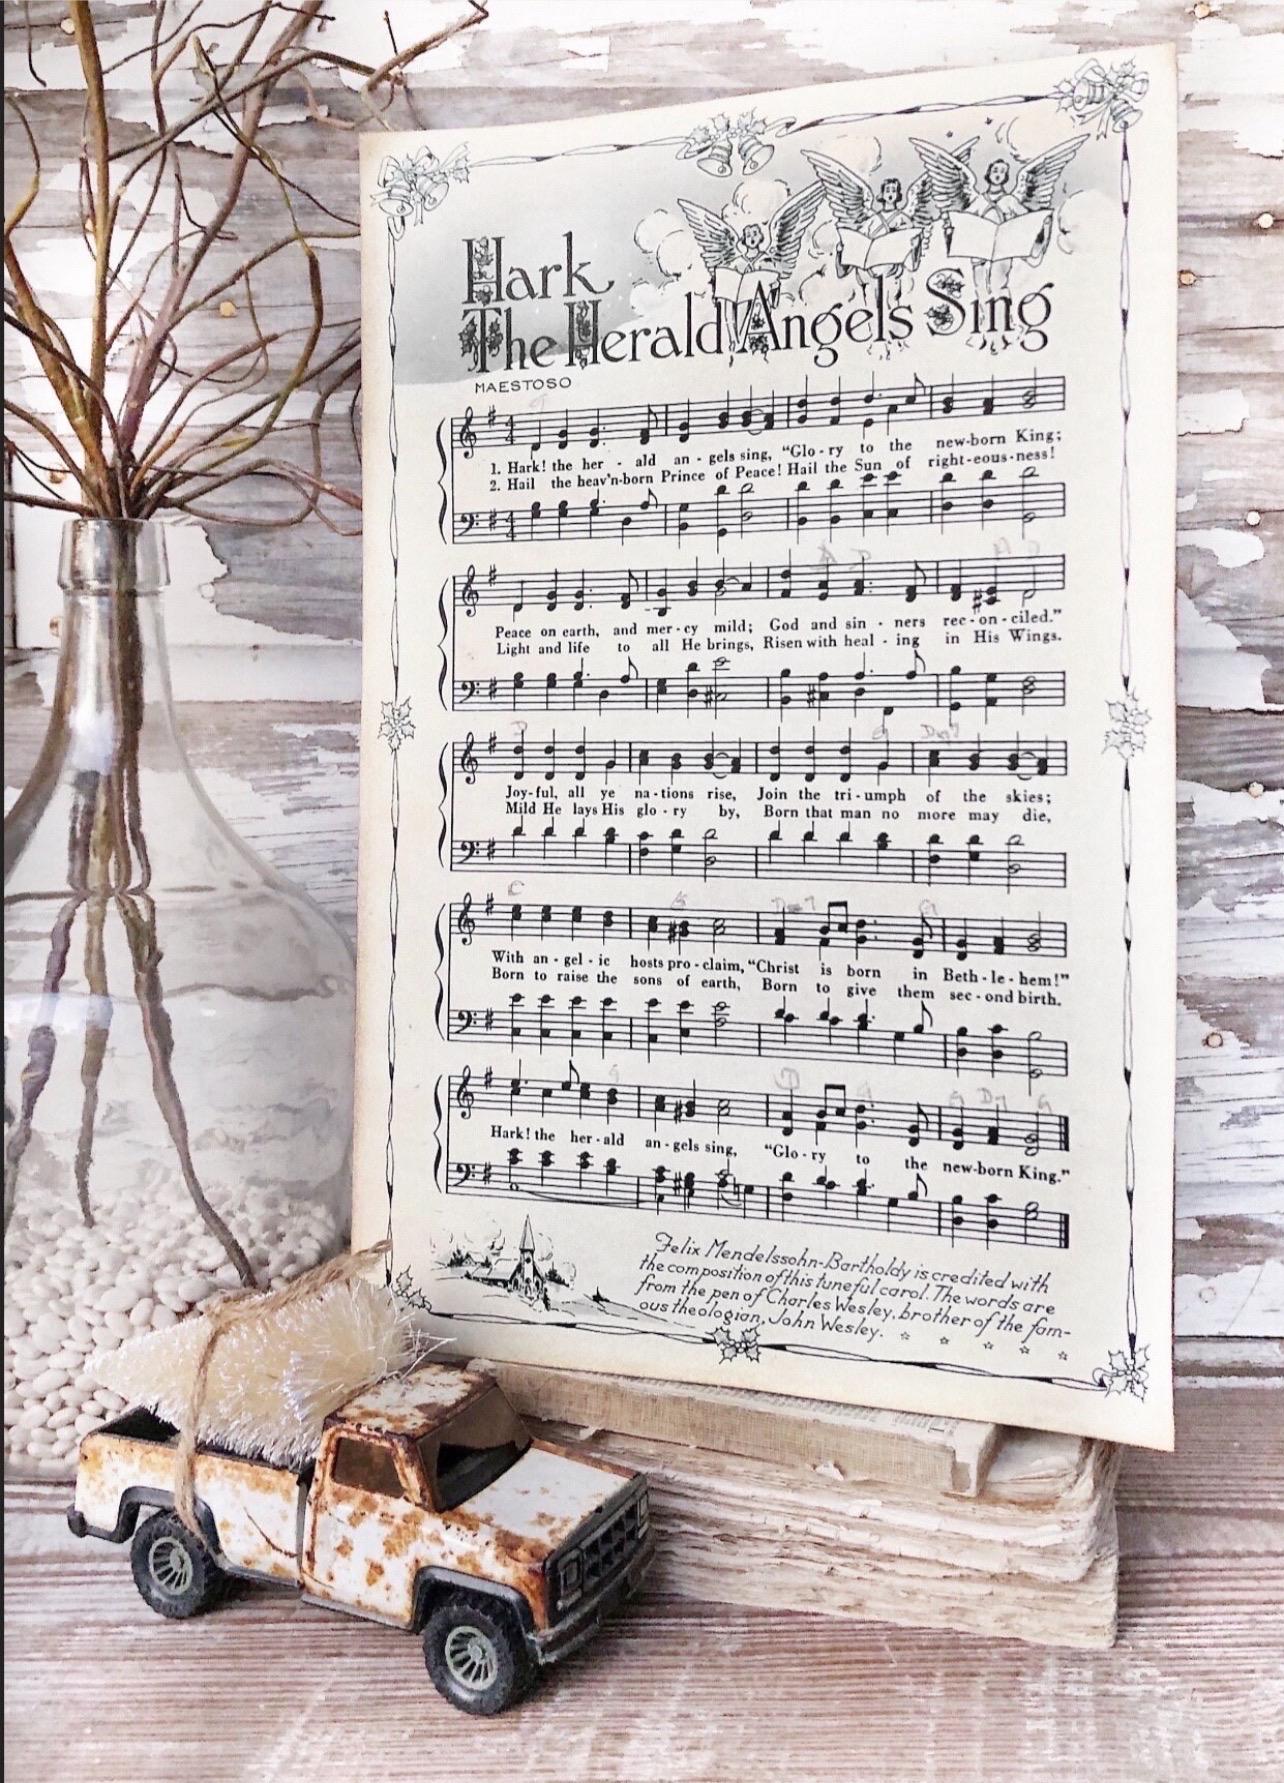 Hark
The Herald Angels Sing
MAESTOSO
1. Hark! the her - ald an - gels sing, “Glo - ry to the new-born King;
2. Hail the heav'n-born Prince of Peace! Hail the Sun of right-eous-ness!
Peace on earth, and mer - cy mild; God and sin - ners rec - on - ciled.”
Light and life to all He brings, Risen with heal - ing in His Wings.
D
Joy-ful, all ye na-tions rise, Join the tri-umph of the skies;
Mild He lays His glo - ry by, Born that man no more may die,
C
With an - gel - ic hosts pro - claim, “Christ is born in Beth - le - hem!”
Born to raise the sons of earth, Born to give them sec - ond birth.
Hark! the her - ald an - gels sing, “Glo - ry to the new-born King.”
Felix Mendelssohn-Bartholdy is credited with
the composition of this tuneful carol. The words are
from the pen of Charles Wesley, brother of the fam-
ous theologian, John Wesley.